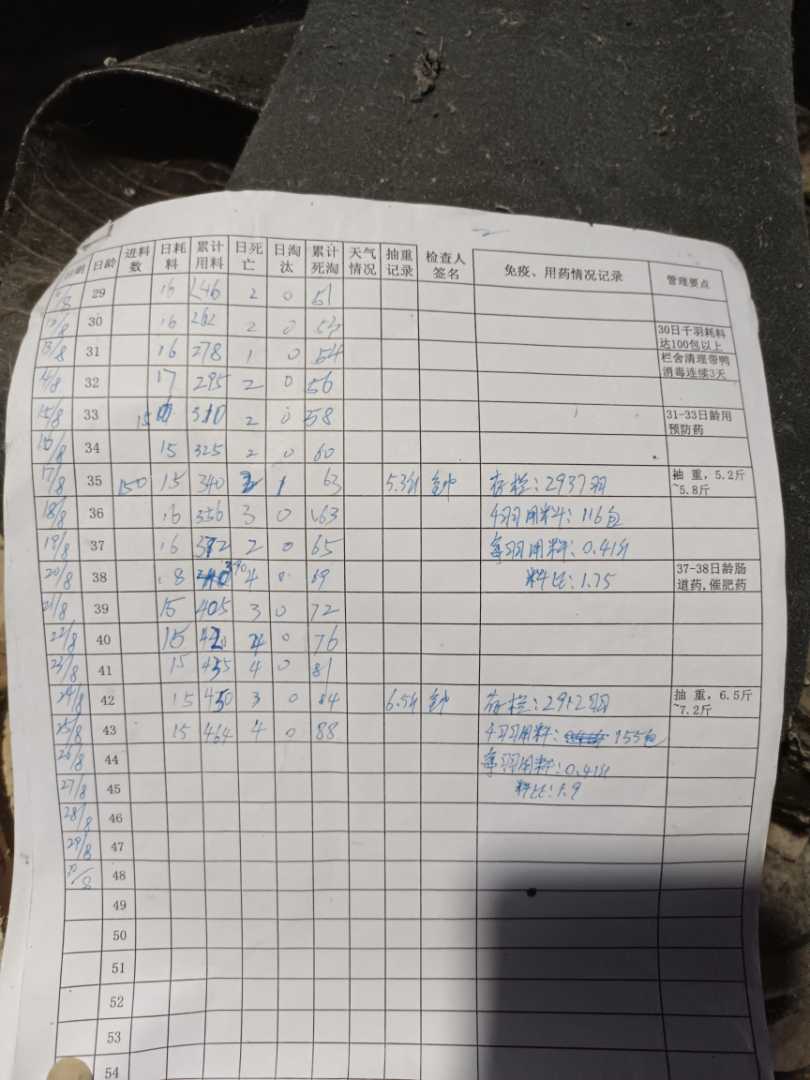 日龄 进料数 日耗料 累计用料 日死亡 日淘汰 累计死淘 天气情况 抽重记录 检查人签名 免疫、用药情况记录 管理要点
/8 29 16 246 2 0 51
12/8 30 16 262 2 0 53 30日千羽耗料达100包以上
13/8 31 16 278 1 0 54 栏舍清理带鸭消毒连续3天
14/8 32 17 295 2 0 56
15/8 33 15 310 2 0 58 31-33日龄用预防药
16/8 34 15 325 2 0 60
17/8 35 150 15 340 2 1 63 5.3斤 存栏:2937羽 抽重,5.2斤~5.8斤
18/8 36 16 356 3 0 63 用料:116包
19/8 37 16 372 2 0 65 每羽用料:0.41斤
20/8 38 8 390 4 0 69 料比:1.75 37-38日龄肠道药,催肥药
21/8 39 15 405 3 0 72
22/8 40 15 420 4 0 76
23/8 41 15 435 4 0 81
24/8 42 15 450 3 0 84 6.5斤 存栏:2912羽 抽重,6.5斤~7.2斤
25/8 43 15 464 4 0 88 用料:155包
26/8 44 每羽用料:0.41斤
27/8 45 料比:1.9
28/8 46
29/8 47
30/8 48
49
50
51
52
53
54